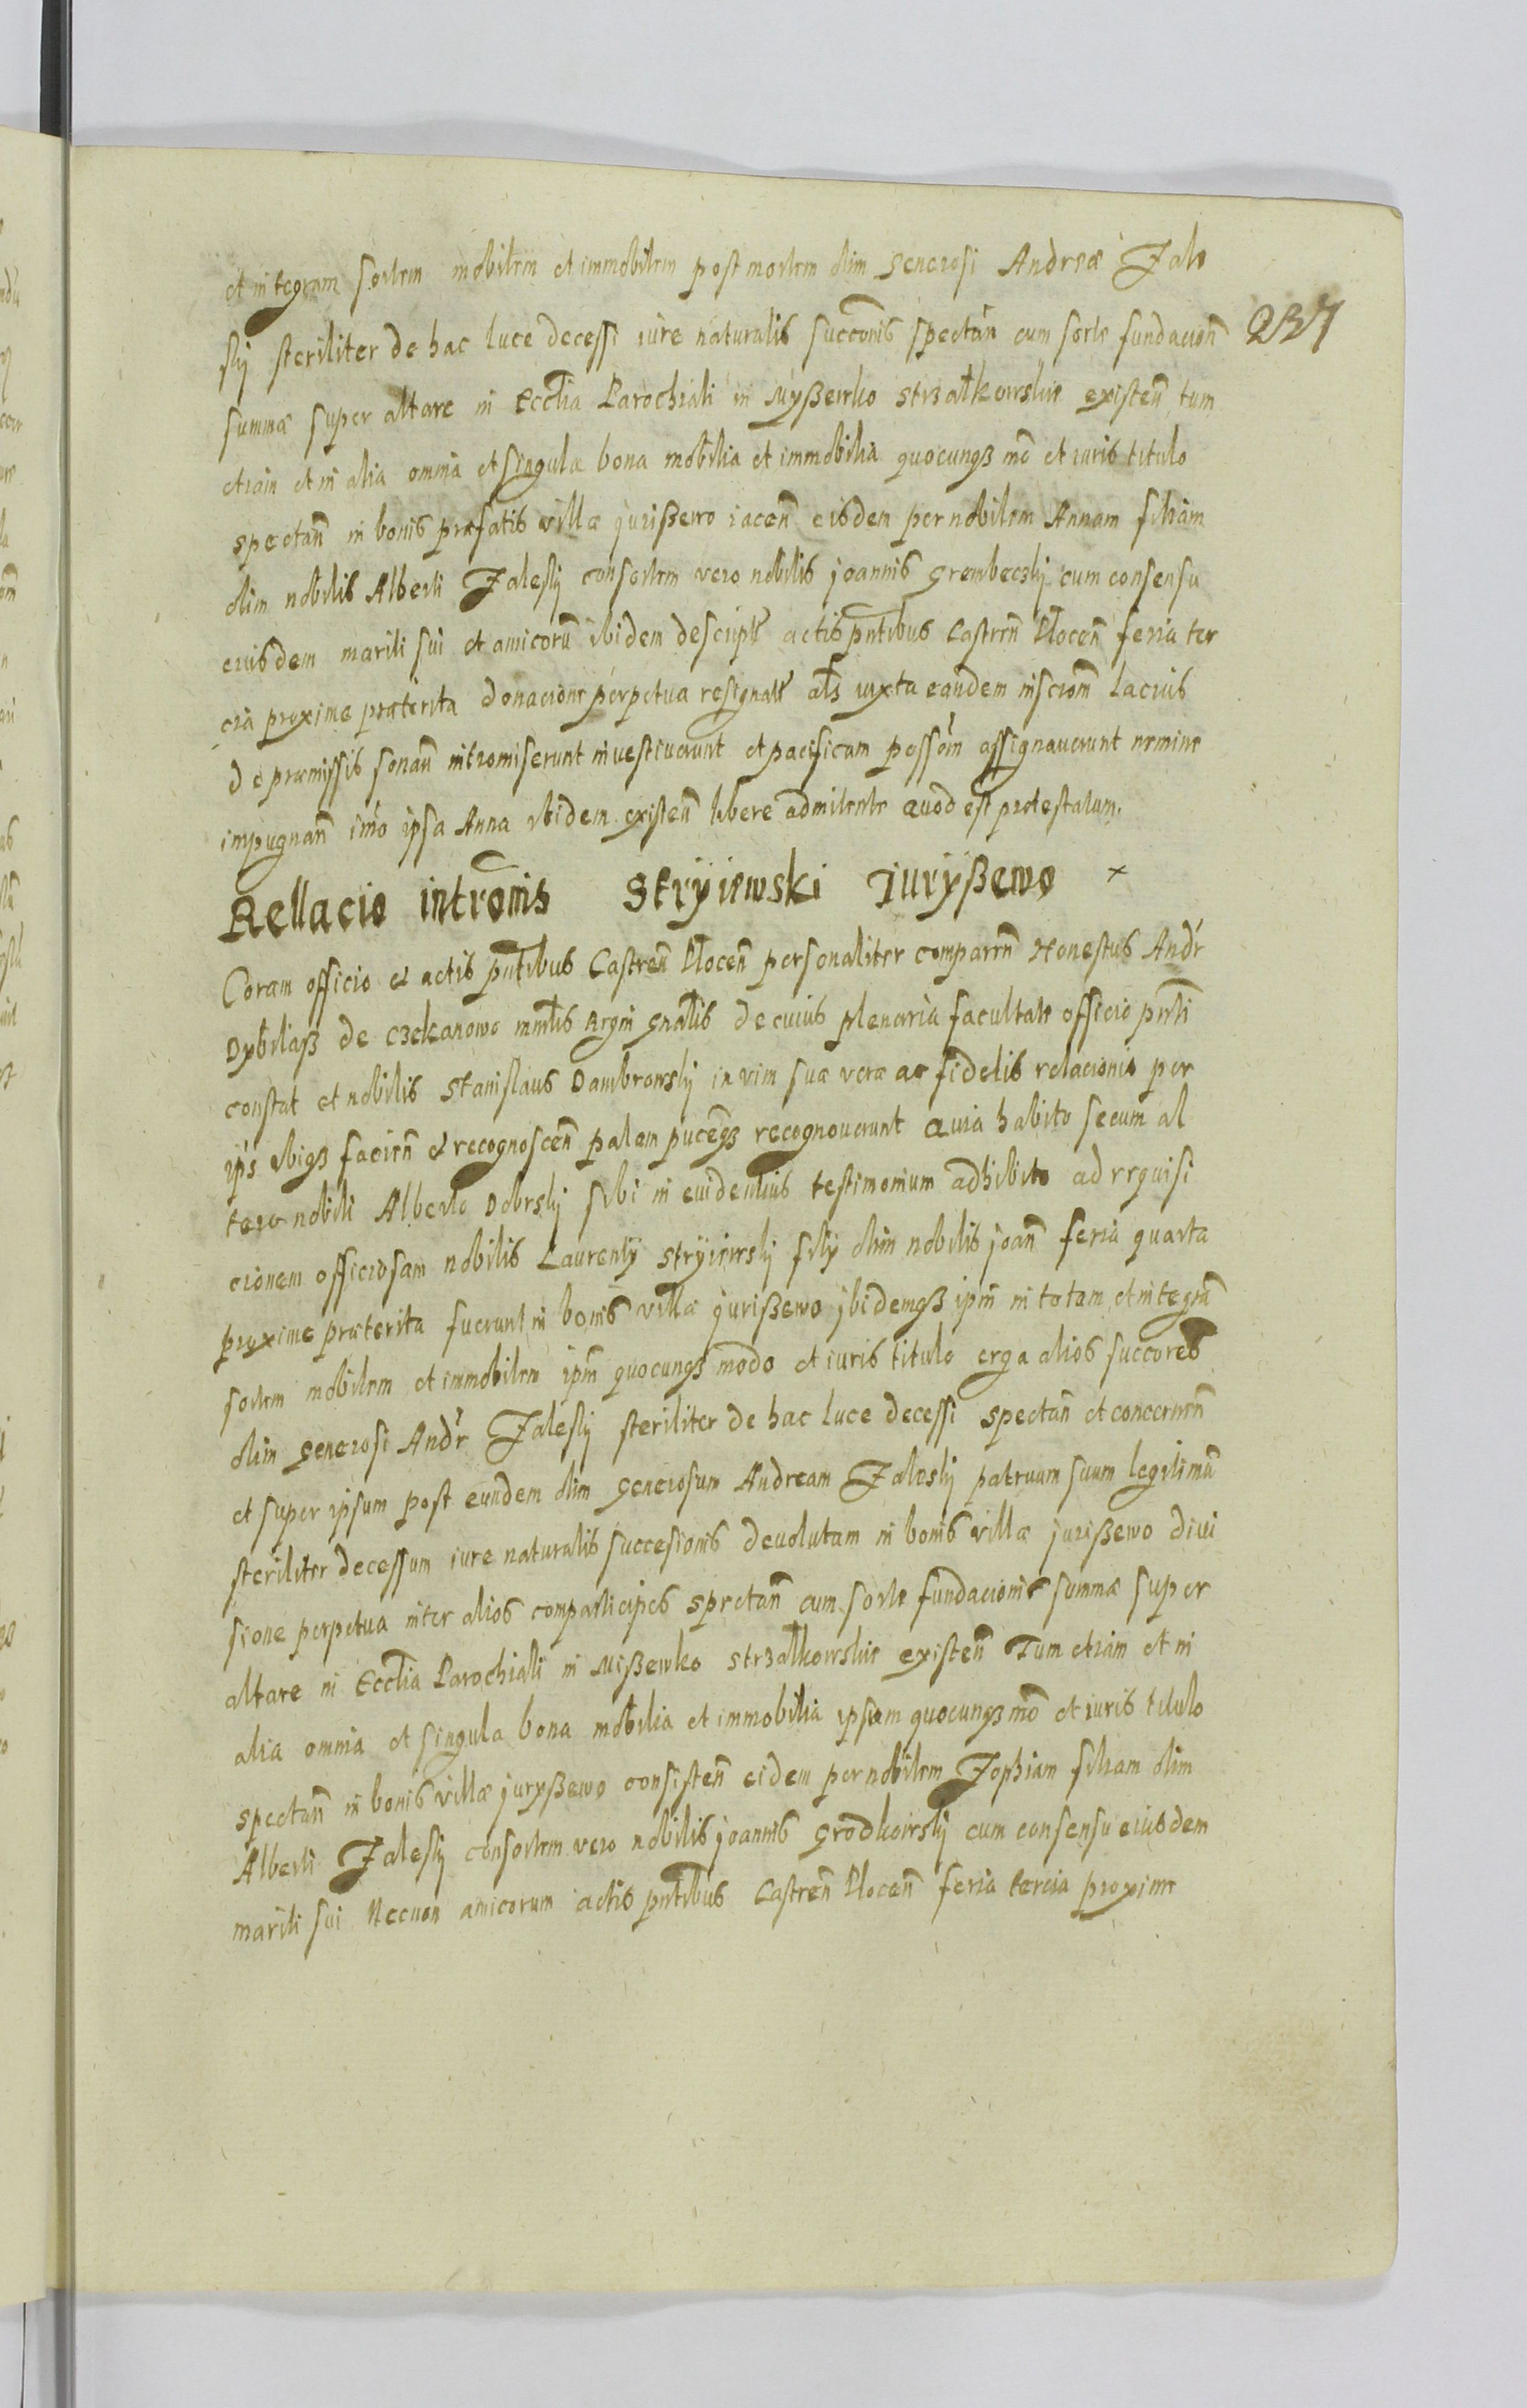 et integram sortem mobilem et immobilem post mortem olim Generosi Andreæ Zale
237
skÿ steriliter de hac luce decessi iure naturalis succonis spectan̄ cum sorte fundacion̄
summæ super altare in Ecclia Parochiali in Myßewko Strzałkowskie existen̄ tum
etiam et in alia omnia et singula bona mobilia et immobilia quocunqȝ mō et iuris titulo
spectan̄ in bonis præfatis villæ Jurißewo iacen̄ eisdem per nobilem Annam filiam
olim nobilis Alberti Zaleskÿ consortem vero nobilis Joannis Grembeczkÿ cum consensu
eiusdem mariti sui et amicorū ibidem descript̄ actis pñtibus Castren̄ Plocen̄ feria ter
cia proxime præterita donacione perpetua resignat̄ als iuxta eandem inscrōm lacius
de præmissis sonan̄ intromiserunt investiverunt et pacificam possōm assignaverunt nemine
impugnan̄ imo ipsa Anna ibidem existen̄ libere admitente Quod est protestatum.
Rellacio intronis Stryiewski Juryßewo ×
Coram officio et actis pñtibus Castren̄ Plocen̄ personaliter comparen̄ Honestus Andr
Dybilaß de Czekanowo mnrlis Regni Gnalis de cuius plenaria facultate officio pnti
constat et nobilis Stanislaus Dambrowskÿ in vim suæ veræ ac fidelis relacionis per
ips ibiqȝ facien̄ et recognoscen̄ palam pūceqȝ recognoverunt Quia habito secum al
tero nobili Alberto Dobrskÿ sibi in evidentius testimonium adhibito ad requisi
cionem officiosam nobilis Laurentÿ Stryiewskÿ filÿ olim nobilis Joan̄ feria quarta
proxime præterita fuerunt in bonis villæ Jurißewo ibidemqȝ ipm̄ in totam et integrā
sortem mobilem et immobilem ipm̄ quocunqȝ modo et iuris titulo erga alios succores
olim Generosi Andr Zaleskÿ steriliter de hac luce decessi spectan̄ et concernen̄
et super ipsum post eundem olim Generosum Andream Zaleskÿ patruum suum legitimū
steriliter decessum iure naturalis succesionis devolutam in bonis villæ Jurißewo divi
sione perpetua inter alios comparticipes spectan̄ cum sorte fundacionis summæ super
altare in Ecclia Parochiali in Mißewko Strzałkowskie existen̄ Tum etiam et in
alia omnia et singula bona mobilia et immobilia ipsum quocunqȝ mō et iuris titulo
spectan̄ in bonis villæ Juryßewo consisten̄ eidem per nobilem Zophiam filiam olim
Alberti Zaleskÿ consortem vero nobilis Joannis Grodkowskÿ cum consensu eiusdem
mariti sui Necnon amicorum actis pñtibus Castren̄ Plocen̄ feria tercia proxime